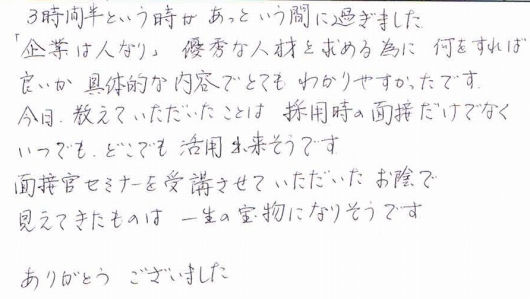 3時間半という時があっという間に過ぎました
「企業は人なり」 優秀な人材を求める為に 何をすれば
良いか 具体的な内容でとても わかりやすかったです.
今日.教えていただいたことは 採用時の面接だけでなく
いつでも.どこでも 活用出来そうです
面接官セミナーを受講させていただいた お陰で
見えてきたものは 一生の宝物になりそうです
ありがとう ございました